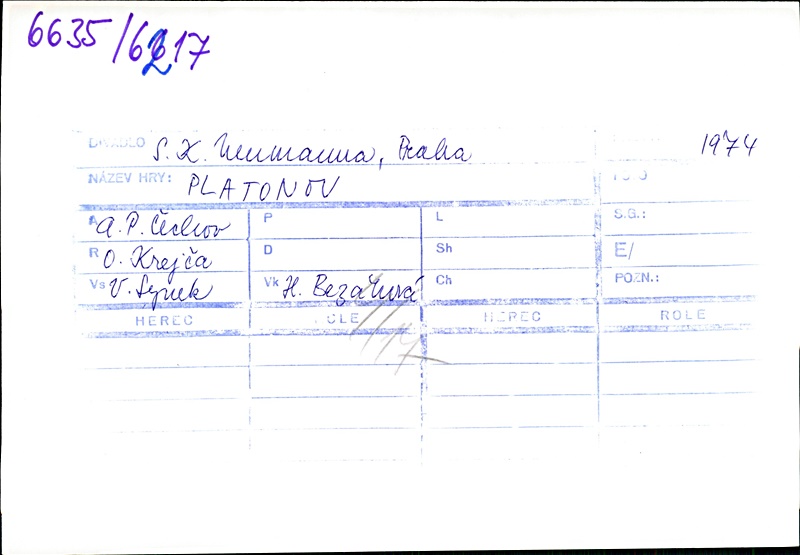 6635/6217
DIVADLO S. K. Neumanna, Praha 1974
NÁZEV HRY: PLATONOV
A A. P. Čechov P L S.G.:
R O. Krejča D Sh E/
Vs V. Synek Vk H. Bezáková Ch POZN.:
HEREC ROLE HEREC ROLE